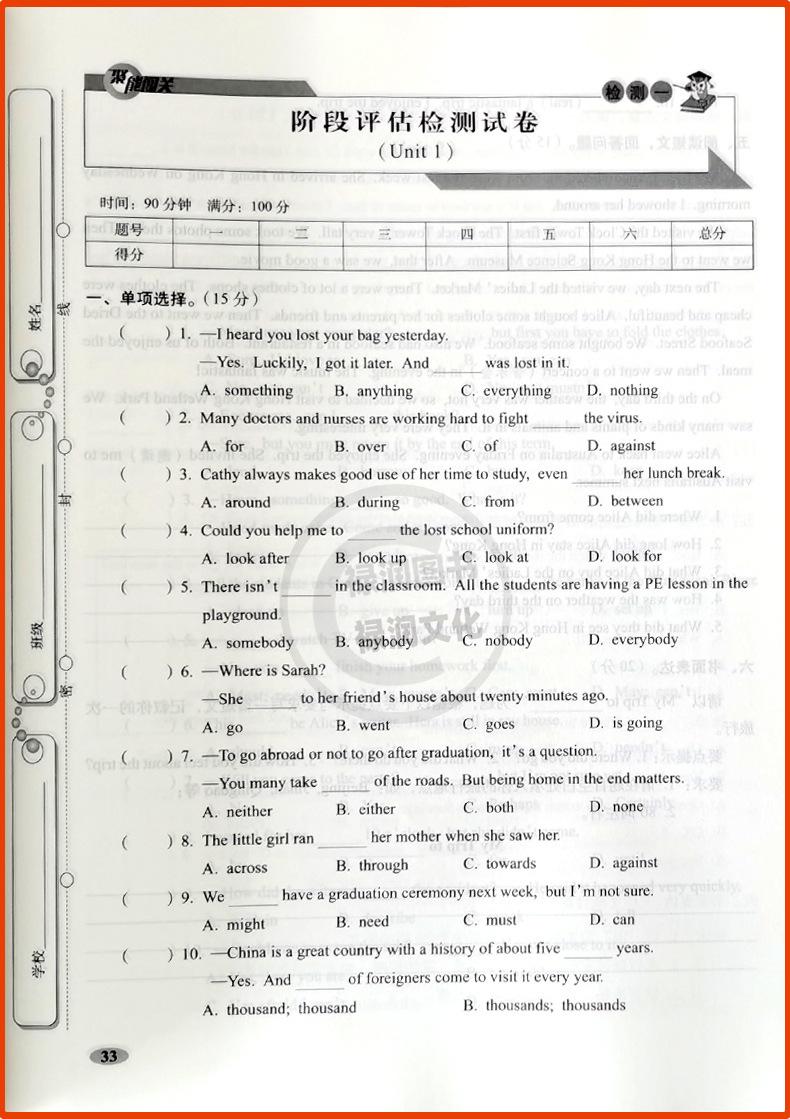 聚能闯关
检测一
阶段评估检测试卷
(Unit 1)
时间：90分钟 满分：100分
题号 一 二 三 四 五 六 总分
得分
一、单项选择。(15分)
( ) 1. —I heard you lost your bag yesterday.
—Yes. Luckily, I got it later. And ______ was lost in it.
A. something B. anything C. everything D. nothing
( ) 2. Many doctors and nurses are working hard to fight ______ the virus.
A. for B. over C. of D. against
( ) 3. Cathy always makes good use of her time to study, even ______ her lunch break.
A. around B. during C. from D. between
( ) 4. Could you help me to ______ the lost school uniform?
A. look after B. look up C. look at D. look for
( ) 5. There isn't ______ in the classroom. All the students are having a PE lesson in the
playground.
A. somebody B. anybody C. nobody D. everybody
( ) 6. —Where is Sarah?
—She ______ to her friend's house about twenty minutes ago.
A. go B. went C. goes D. is going
( ) 7. —To go abroad or not to go after graduation, it's a question.
—You many take ______ of the roads. But being home in the end matters.
A. neither B. either C. both D. none
( ) 8. The little girl ran ______ her mother when she saw her.
A. across B. through C. towards D. against
( ) 9. We ______ have a graduation ceremony next week, but I'm not sure.
A. might B. need C. must D. can
( ) 10. —China is a great country with a history of about five ______ years.
—Yes. And ______ of foreigners come to visit it every year.
A. thousand; thousand B. thousands; thousands
33
姓名
班级
学校
线
封
密
禄润图书
禄润文化